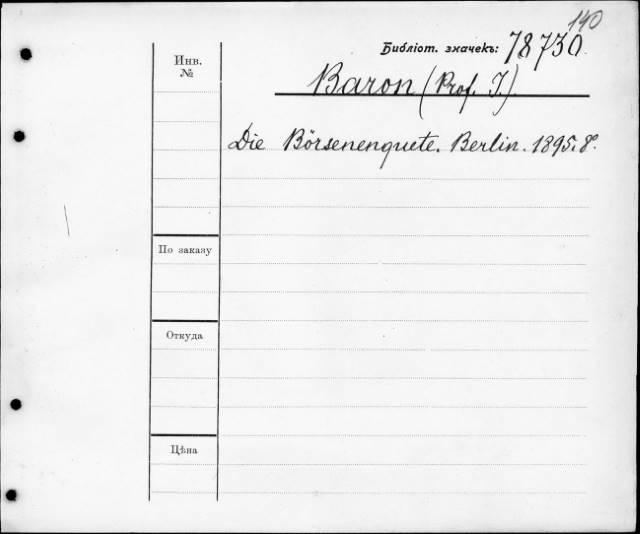 140
Библіот. значекъ: 78730
Инв.
№
Baron (Prof. J.)
Die Börsenenquete. Berlin. 1895. 8º.
По заказу
Откуда
Цѣна